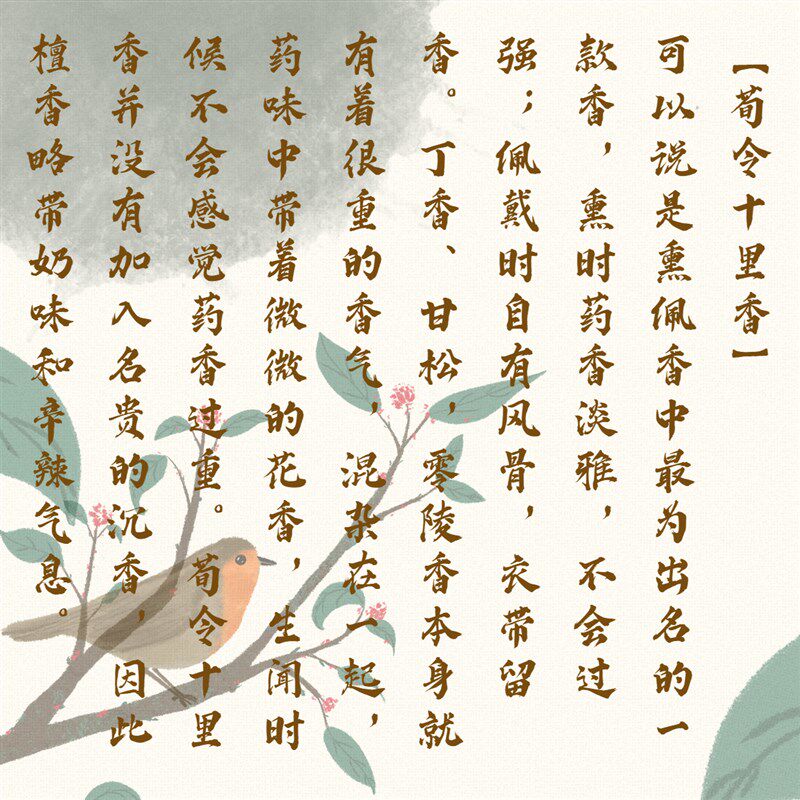 【荀令十里香】
可以说是熏佩香中最为出名的一
款香，熏时药香淡雅，不会过
强；佩戴时自有风骨，衣带留
香。丁香、甘松，零陵香本身就
有着很重的香气，混杂在一起，
药味中带着微微的花香，生闻时
候不会感觉药香过重。荀令十里
香并没有加入名贵的沉香，因此
檀香略带奶味和辛辣气息。